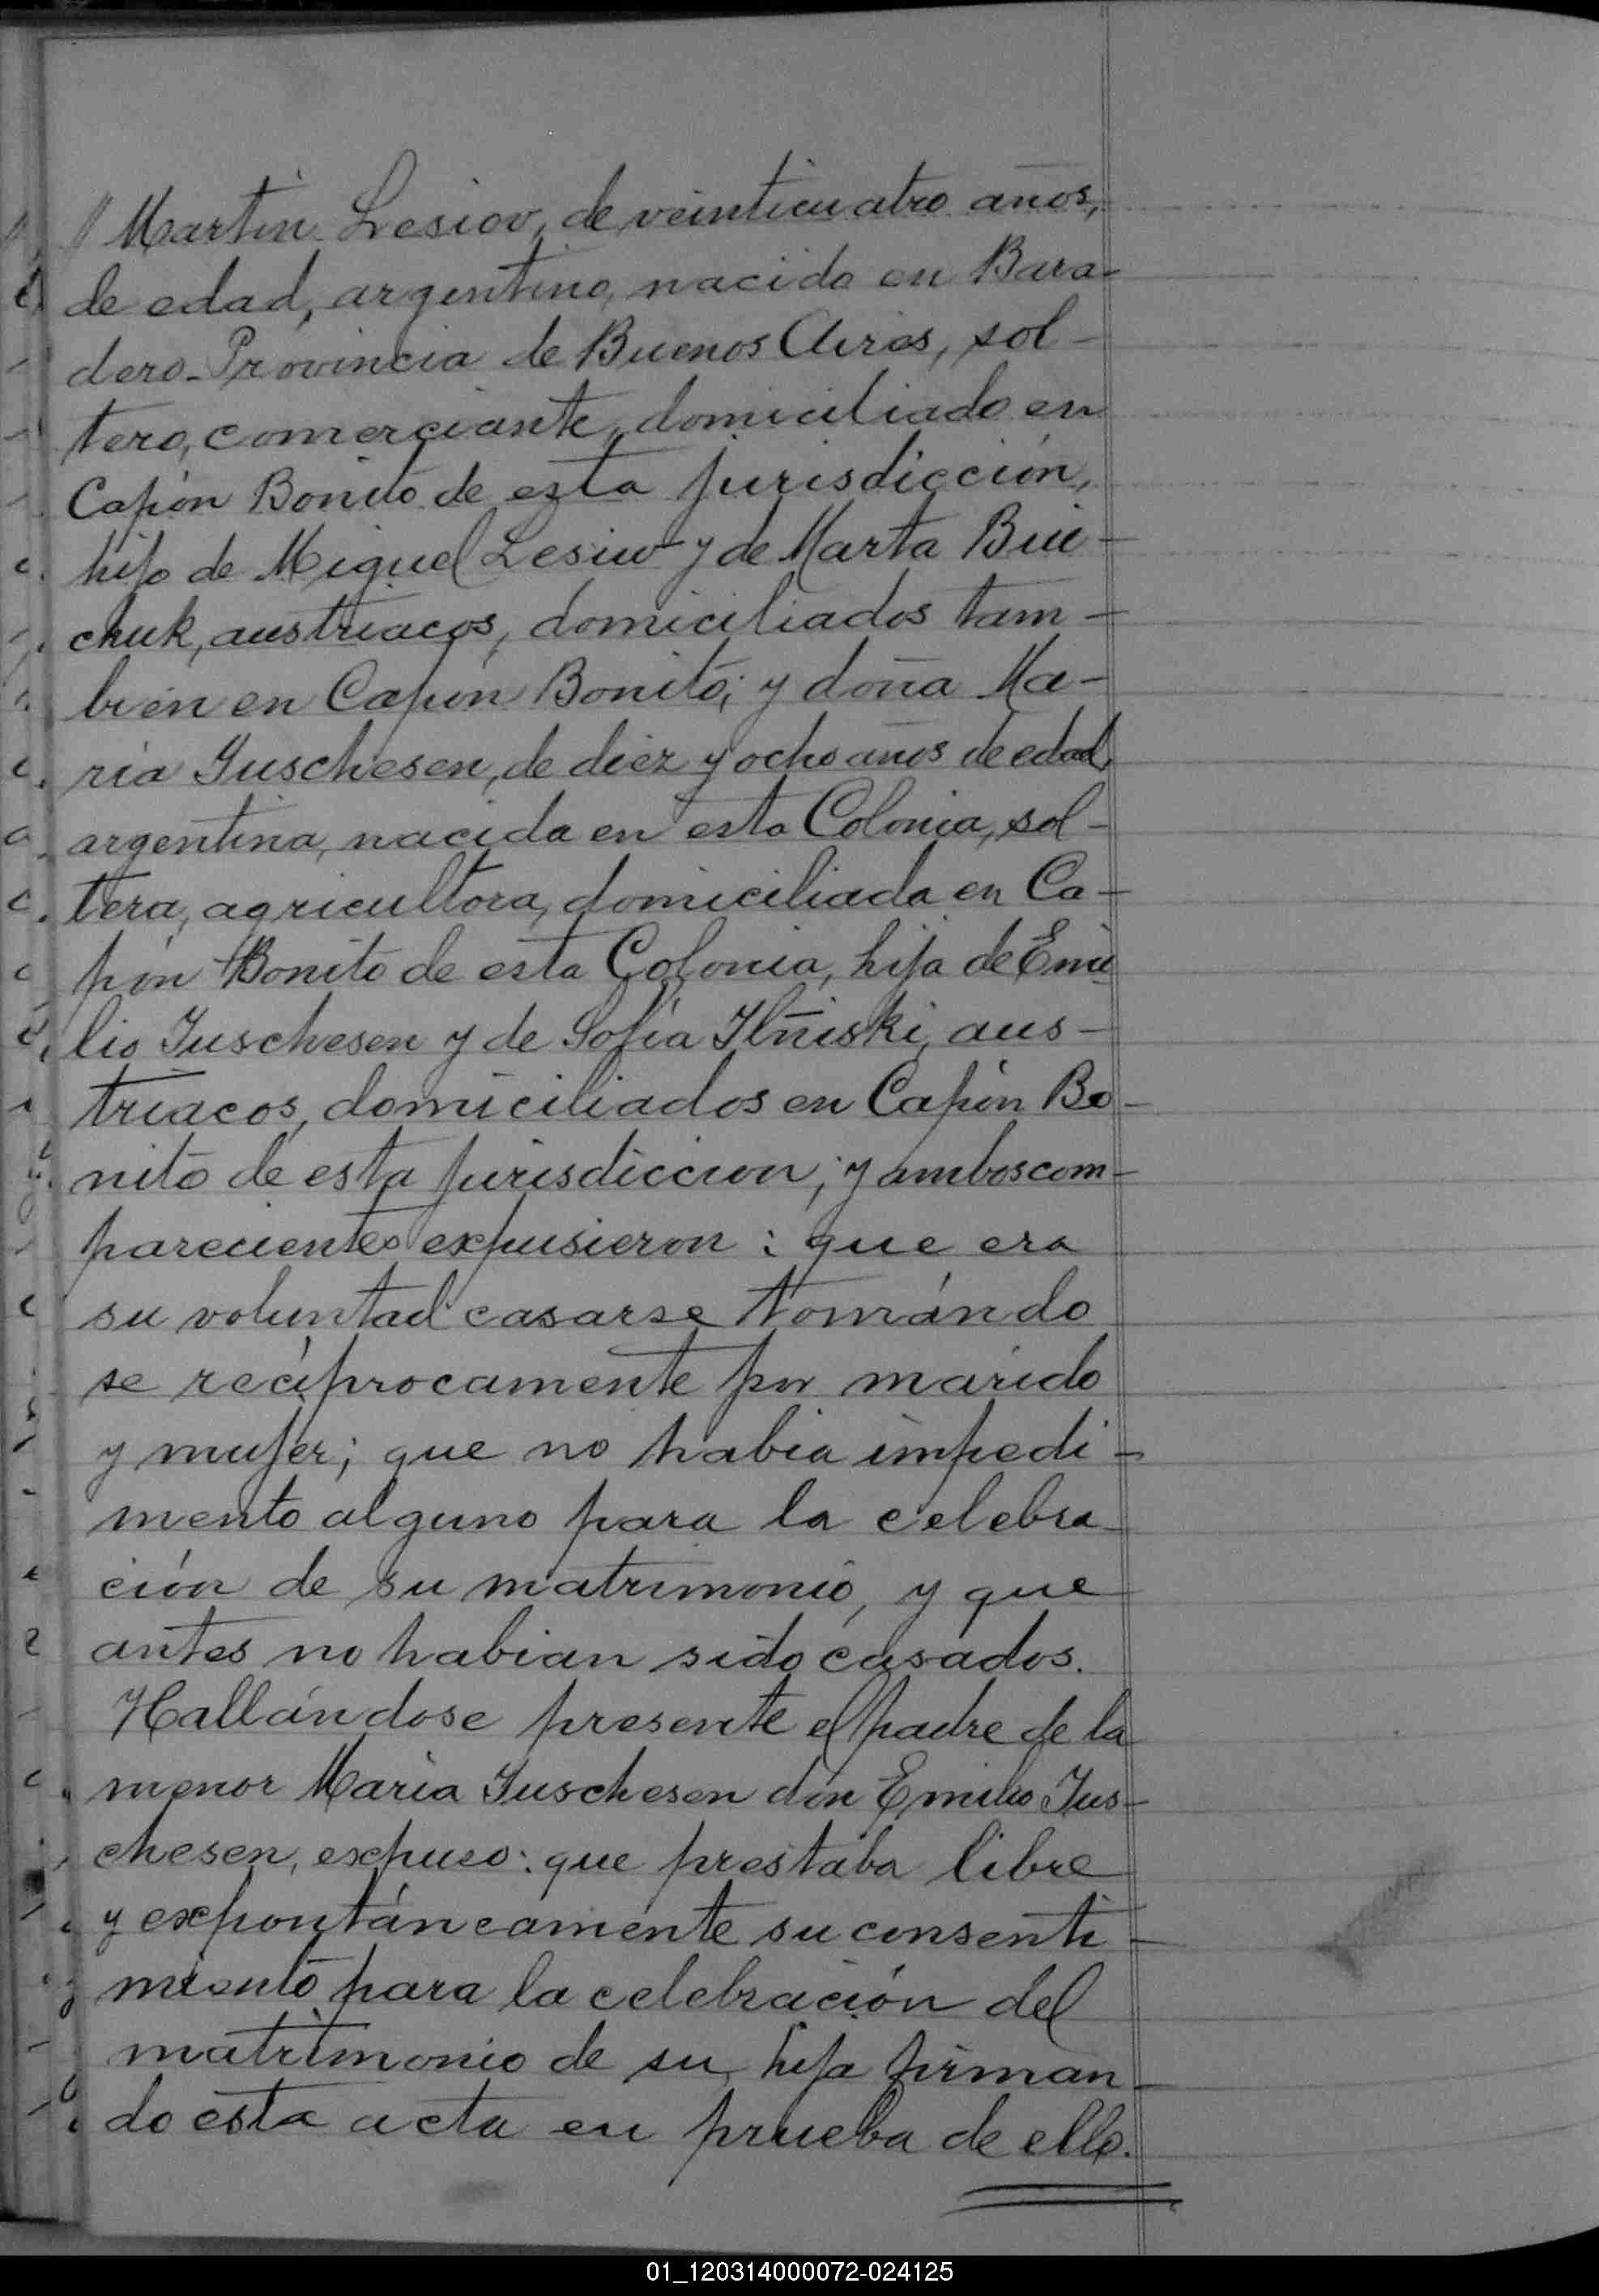 // Martin Lesiov, de veinticuatro años,
de edad, argentino, nacido en Bara-
dero - Provincia de Buenos Aires, sol-
tero, comerciante, domiciliado en
Capón Bonito de esta jurisdicción,
hijo de Miguel Lesiw y de Marta Bui-
chuk, austriacos, domiciliados tam-
bién en Capón Bonito; y doña Ma-
ria Juschesen, de diez y ocho años de edad,
argentina, nacida en esta Colonia, sol-
tera, agricultora, domiciliada en Ca-
pón Bonito de esta Colonia, hija de Emi-
lio Juschesen y de Sofía Ilñiski, aus-
triacos, domiciliados en Capón Bo-
nito de esta jurisdiccion; y ambos com-
parecientes expusieron: que era
su voluntad casarse tomándo
se recíprocamente por marido
y mujer; que no habia impedi-
mento alguno para la celebra-
ción de su matrimonio, y que
antes no habian sido casados.
Hallándose presente el padre de la
menor Maria Juschesen don Emilio Jus-
chesen, expuso: que prestaba libre
y expontáneamente su consenti-
miento para la celebración del
matrimonio de su hija firman-
do esta acta en prueba de ello.
01_120314000072-024125